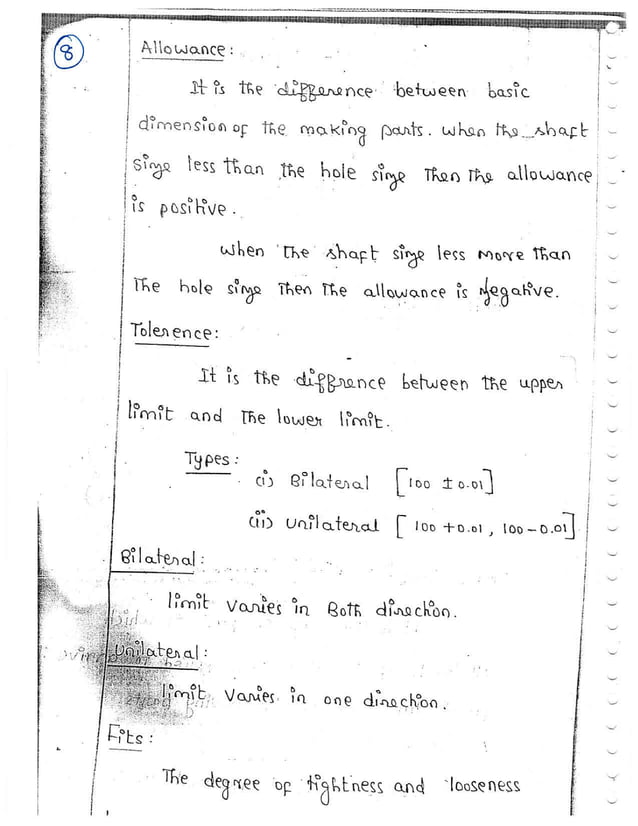 8
Allowance :
It is the difference between basic
dimension of the making parts. when the shaft
sinze less than the hole sinze Then The allowance
is positive.
when The shaft sinze less more Than
The hole sinze Then The allowance is Negative.
Tolerence :
It is the diffrence between the upper
limit and The lower limit.
Types :
(i) Bilateral [100 ± 0.01]
(ii) unilateral [ 100 +0.01 , 100 - 0.01]
Bilateral :
limit varies in Both direction.
Unilateral :
limit varies in one direction.
Fits :
The degree of tightness and looseness